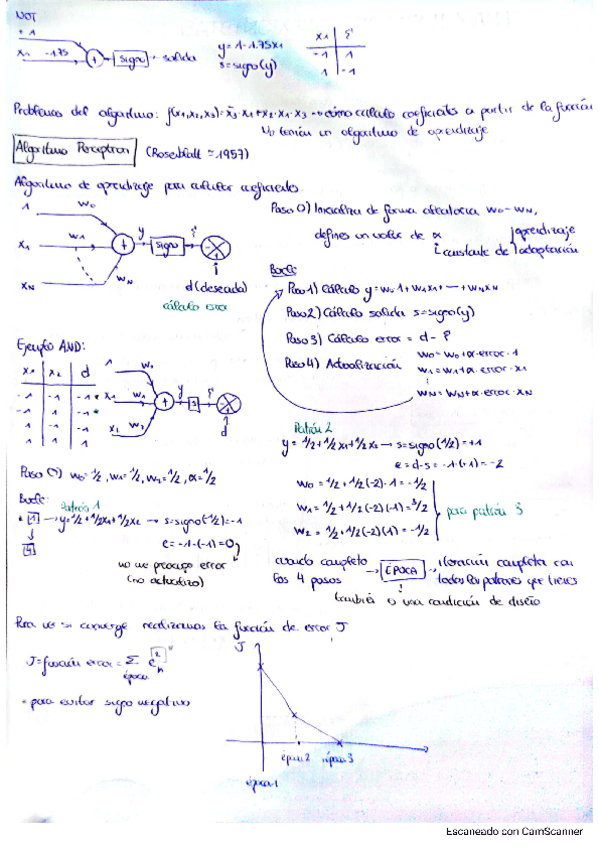 NOT
+1
x1 -1.75 + signo → salida
y = 1 - 1.75x1
s = signo(y)
x1 | s
-1 | 1
1 | -1
Problemas del algoritmo: f(x1,x2,x3) = x̄3·x1+x2·x1·x3 → cómo cálculo coeficientes a partir de la función
No tenían un algoritmo de aprendizaje
Algoritmo Perceptron (Rosenblatt ≈ 1957)
Algoritmo de aprendizaje para calcular coeficientes.
1 w0
x1 w1 + y signo s ×
xN wN
d (deseada)
cálculo error
Paso 0) Inicializa de forma aleatoria w0-wN,
defines un valor de α
constante de aprendizaje
adaptación
Bucle
Paso 1) Cálculo y = w0·1 + w1x1 + ... + wNxN
Paso 2) Cálculo salida s = signo(y)
Paso 3) Cálculo error = d - s
Paso 4) Actualización w0 = w0+α·error·1
w1 = w1+α·error·x1
wN = wN+α·error·xN
Ejemplo AND:
x1 | x2 | d
-1 | -1 | -1
-1 | 1 | -1
1 | -1 | -1
1 | 1 | 1
1 w0
x1 w1 + y s ×
x2 w2
d
Paso 0) w0=1/2, w1=1/2, w2=1/2, α=1/2
Bucle:
Patrón 1
1 → y=1/2+1/2x1+1/2x2 → s=signo(-1/2)=-1
4
e=-1-(-1)=0
no me preocupo error
(no actualizo)
Patrón 2
y = 1/2+1/2x1+1/2x2 → s=signo(1/2)=+1
e=d-s=-1-(+1)=-2
w0 = 1/2+1/2(-2)·1 = -1/2
w1 = 1/2+1/2(-2)(-1) = 3/2
w2 = 1/2+1/2(-2)(1) = -1/2
para patrón 3
cuando completo
los 4 pasos → ÉPOCA → iteración completa con
todos los patrones que tienes
también es una condición de diseño
Para ver si converge realizamos la función de error J
J = función error = Σ e²n
época
* para evitar signo negativo
J
época 1
época 2
época 3
Escaneado con CamScanner